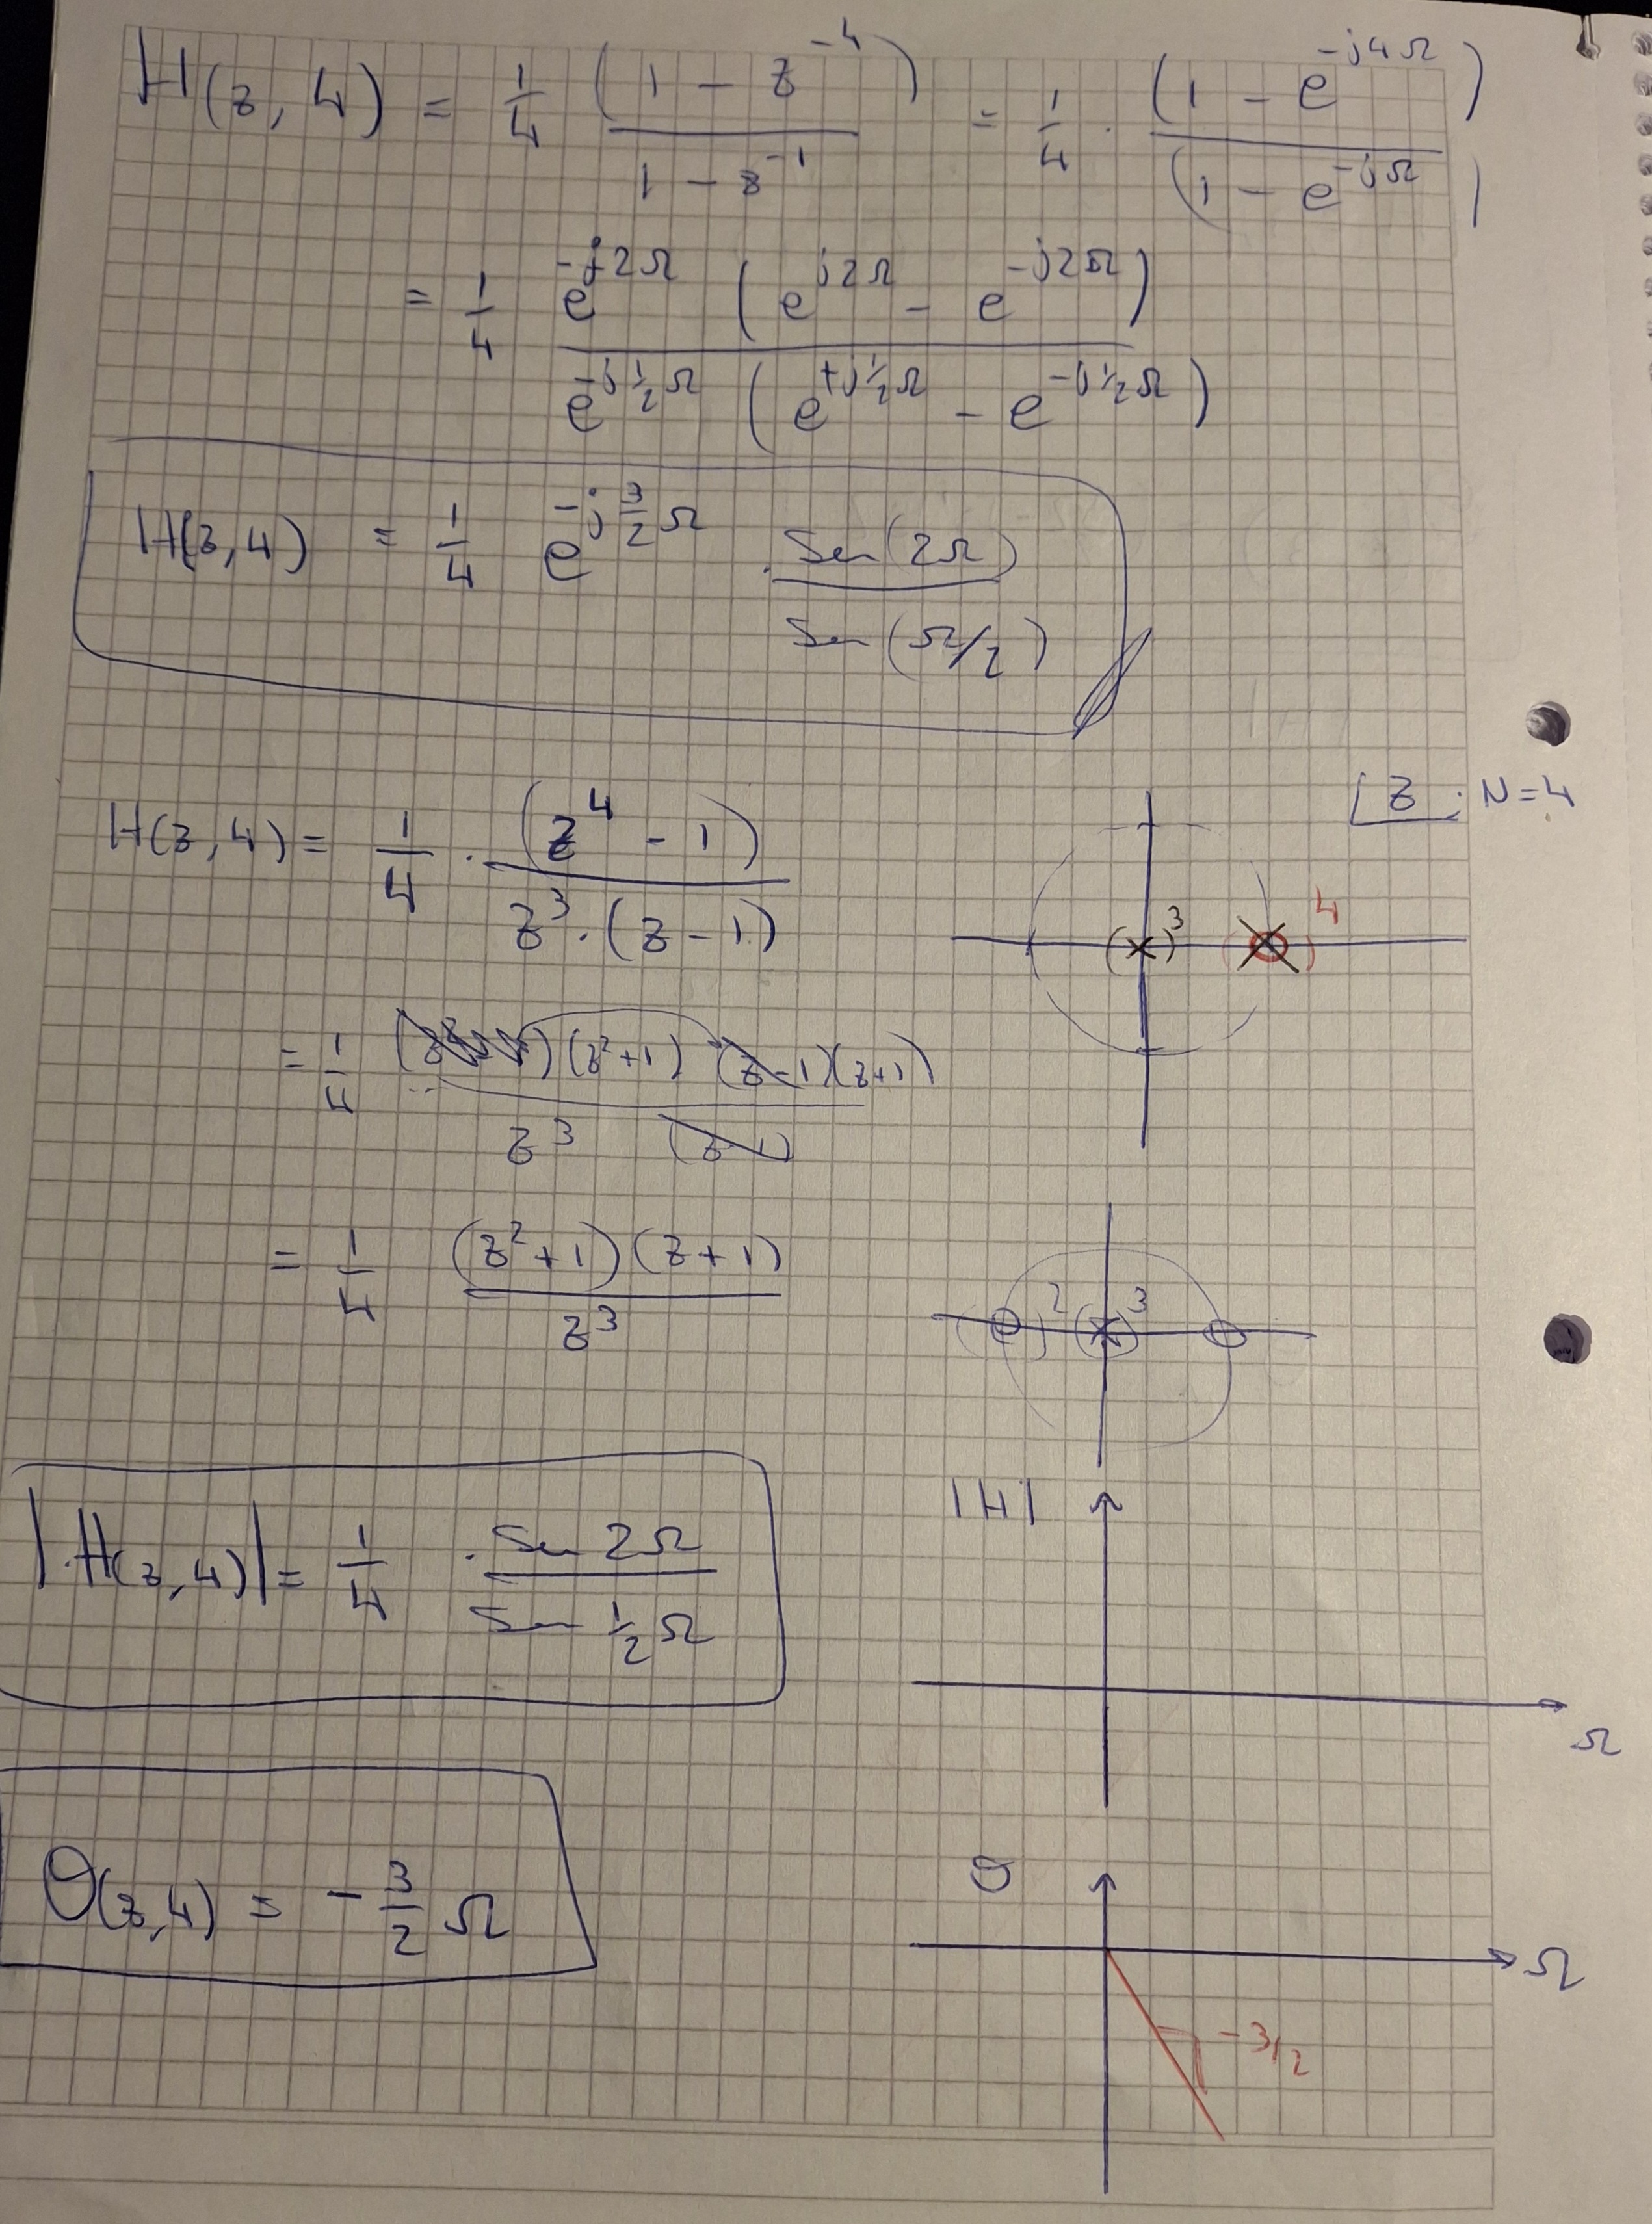 H(z, 4) = 1/4 (1 - z^-4) / (1 - z^-1) = 1/4 · (1 - e^-j4Ω) / (1 - e^-jΩ)
= 1/4 e^-j2Ω (e^j2Ω - e^-j2Ω) / e^-j1/2Ω (e^+j1/2Ω - e^-j1/2Ω)
H(z, 4) = 1/4 e^-j3/2Ω · Sen(2Ω) / Sen(Ω/2)
[Z ; N=4
H(z, 4) = 1/4 · (z^4 - 1) / z^3 · (z - 1)
( x )^3 ( )^4
= 1/4 (z^2+1) (z-1)(z+1) / z^3 (z-1)
= 1/4 (z^2+1)(z+1) / z^3
( )^2 (x)^3
|H|
|H(z, 4)| = 1/4 · Sen 2Ω / Sen 1/2Ω
Ω
Θ
Θ(z,4) = - 3/2 Ω
Ω
-3/2